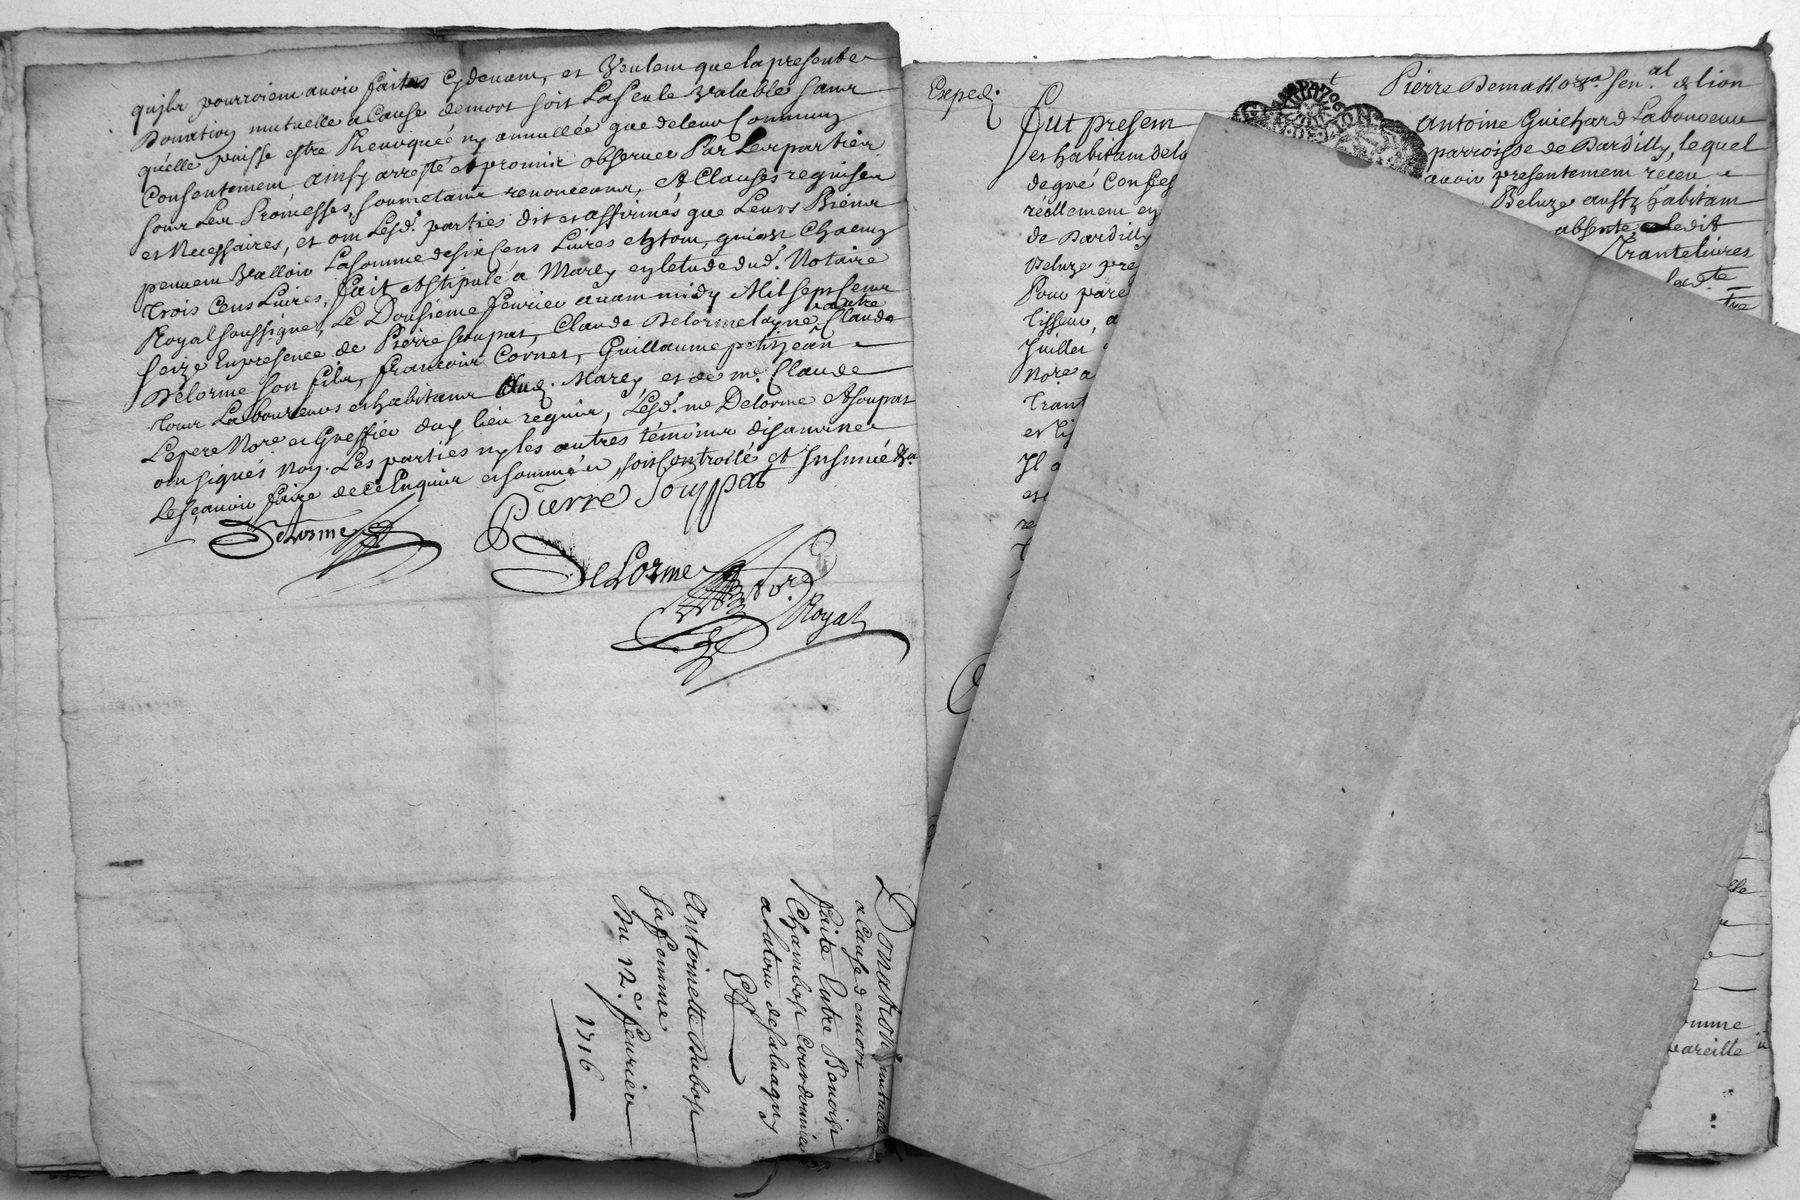 quilz pourroient avoir faites cydevant, et veulent que la presente
Donation mutuelle a Cause demort soit La Seule valable sans
quelle puisse estre Revoquée ny annullée que deleur Commung
Consentement ainsy arresté et promis observer Par Les parties
sous Les Promesses, soumetans renonceans, et Clauses requises
et Necessaires, et ont Lesd. parties dit et affirmés que Leurs Biens
peuvent valloir La Somme de six Cens Livres
Trois Cens Livres, fait et stipulé a Marcy en letude dud. Notaire
Royal soussigné, Le Dousieme fevrier avant midy Mil sept Cens
Seize En presence de Pierre Soupat, Claude Delorme layne, autre Claude
Delorme son fils, francois Cornet, Guillaume petitjean
Tous Laboureurs et habitans dud. Marcy, et de me. Claude
Lepere Nore. et Greffier dud lieu requis, Lesd. me Delorme et Soupat
ont signés non Les parties ny les autres témoins
Le sçavoir faire de ce Enquis et sommés, soit Controllé et Insinué
Delorme
Pierre Souppat
DeLorme
Nore. Royal
Donation mutuelle
a Cause demort
faite Entre Benoist
Chambost Courdonnier
a latour desalvagny
Et
Antoinette Dubost
Sa femme
Du 12e. fevrier
1716
Exped.
Pierre Demasso sen.al de lion
Fut present
Antoine Guichard Laboureur
et habitant dela
parroisse de Dardilly, lequel
degré Confes
avoir presentement receu
réellement en
Beluze aussy habitant
de Dardilly
absente, ledit
Beluze pre
Trante livres
Pour pare
lad. te
tisseur, a
Juillet
Nore. a
Trant
et
Il a
re
omme
pareille